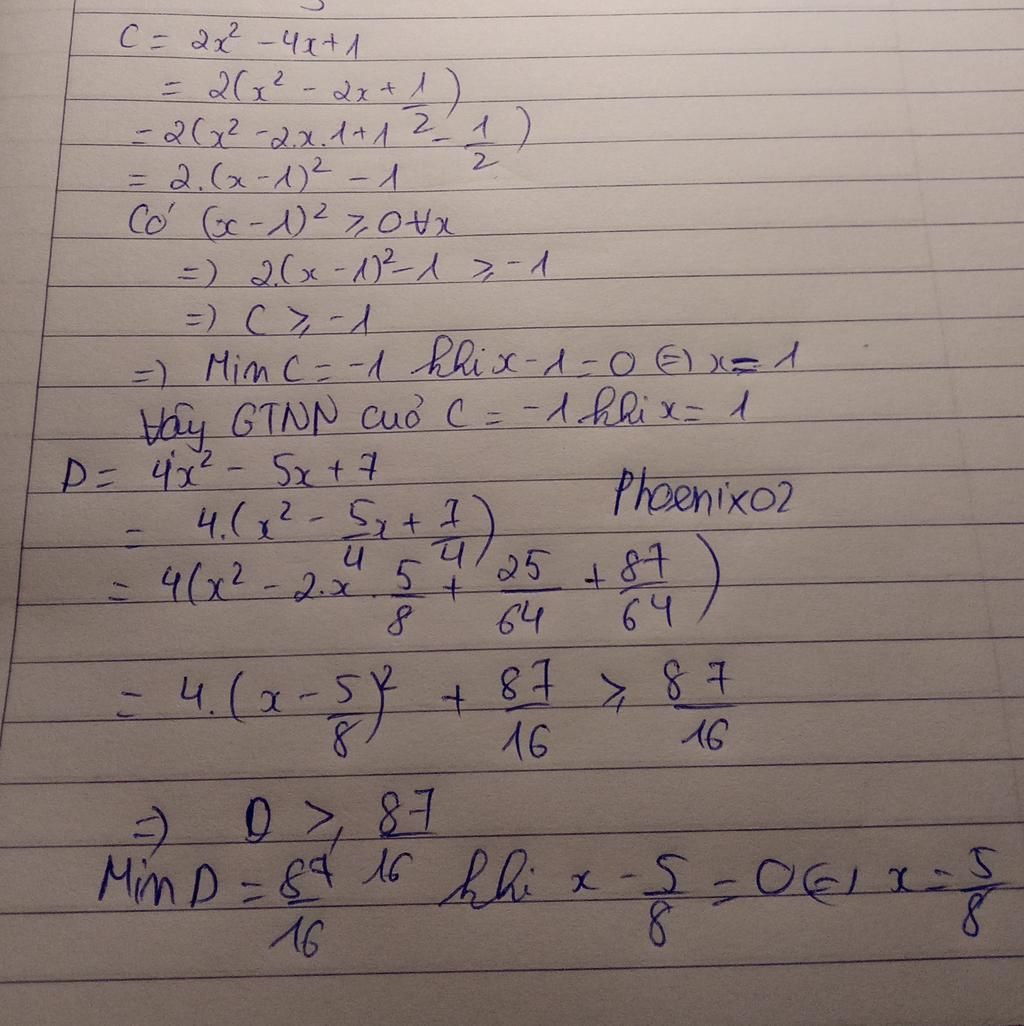 C = 2x² - 4x + 1
= 2(x² - 2x + 1/2)
= 2(x² - 2.x.1 + 1 - 1/2)
= 2.(x - 1)² - 1
Có (x - 1)² ≥ 0 ∀x
=) 2.(x - 1)² - 1 ≥ -1
=) C ≥ -1
=) Min C = -1 khi x - 1 = 0 (=) x = 1
Vậy GTNN cuả C = -1 khi x = 1
D = 4x² - 5x + 7
Phoenix02
= 4.(x² - 5/4x + 7/4)
= 4(x² - 2.x.5/8 + 25/64 + 87/64)
= 4.(x - 5/8)² + 87/16 ≥ 87/16
=) D ≥ 87/16
Min D = 87/16 khi x - 5/8 = 0 (=) x = 5/8